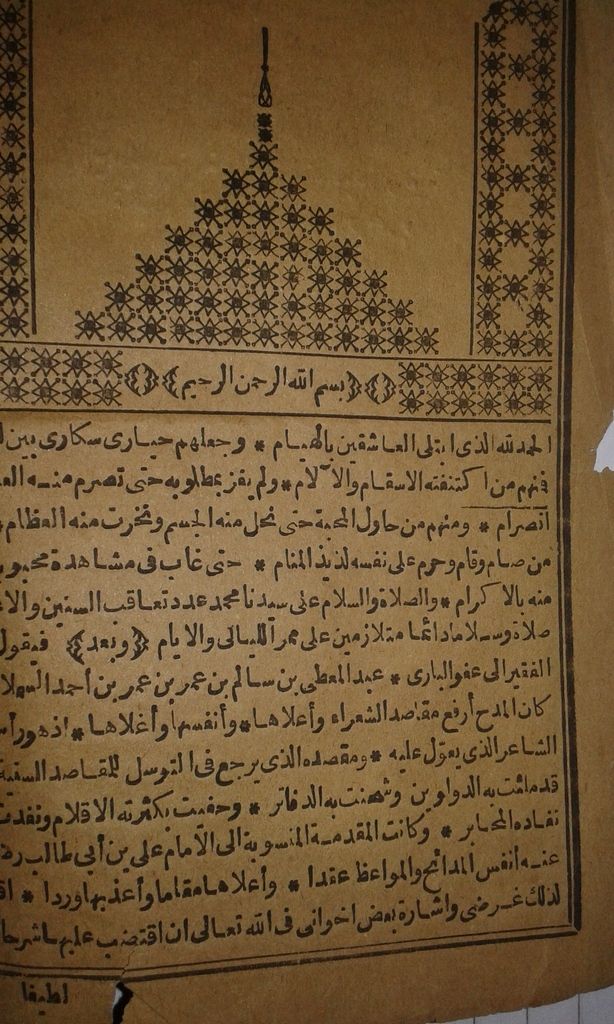 بسم الله الرحمن الرحيم
الحمد لله الذى ابتلى العاشقين بالهيام * وجعلهم حيارى سكارى بين
فنهم من اكتنفته الاسقام والآلام * ولم يفز بمطلوبه حتى تصرم منه
انصرام * ومنهم من حاول المحبة حتى نحل منه الجسم ونخرت منه العظام
من صام وقام وحرم على نفسه لذيذ المنام * حتى غاب فى مشاهدة
منه بالاكرام * والصلاة والسلام على سيدنا محمد عدد تعاقب السنين
صلاة وسلاما دائما متلازمين على ممر الليالى والايام (وبعد) فيقول
الفقير الى عفو البارى * عبد المعطى بن سالم بن عمر بن عمر بن أحمد
كان المدح أرفع مقاصد الشعراء وأعلاها * وأنفسها وأغلاها * اذ هو
الشاعر الذى يعول عليه * ومقصده الذى يرجع فى التوسل للمقاصد السنية
قد ملئت به الدواوين وشحنت به الدفاتر * وحفيت بكثرته الاقلام ونفدت
نفاده المحابر * وكانت المقدمة المنسوبة الى الامام على بن أبى طالب
عنه أنفس المدائح والمواعظ عقدا * وأعلاها مقاما وأعذبها وردا *
لذلك غرضى واشارة بعض اخوانى فى الله تعالى ان اقتضب عليها شرحا
لطيفا